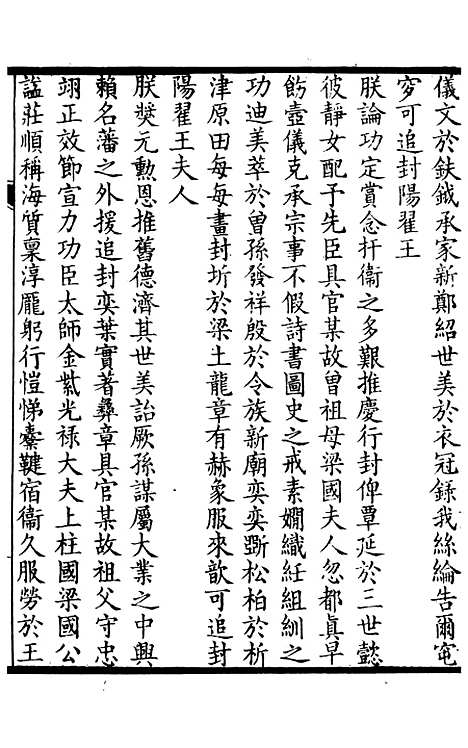 儀文於鈇鉞承家新鄭紹世美於衣冠錄我絲綸告爾窀
穸可追封陽翟王
朕論功定賞念扞衞之多艱推慶行封俾覃延於三世懿
彼靜女配予先臣具官某故曾祖母梁國夫人忽都眞早
飭壼儀克承宗事不假詩書圖史之戒素嫺織絍組紃之
功迪美萃於曾孫發祥殷於令族新廟奕奕斲松柏於析
津原田每每畫封圻於梁土龍章有赫象服來歆可追封
陽翟王夫人
朕奬元勲恩推舊德濟其世美詒厥孫謀屬大業之中興
賴名藩之外援追封奕葉實著彞章具官某故祖父守忠
翊正效節宣力功臣太師金紫光祿大夫上柱國梁國公
諡莊順稱海質稟淳龎躬行愷悌櫜鞬宿衞久服勞於王